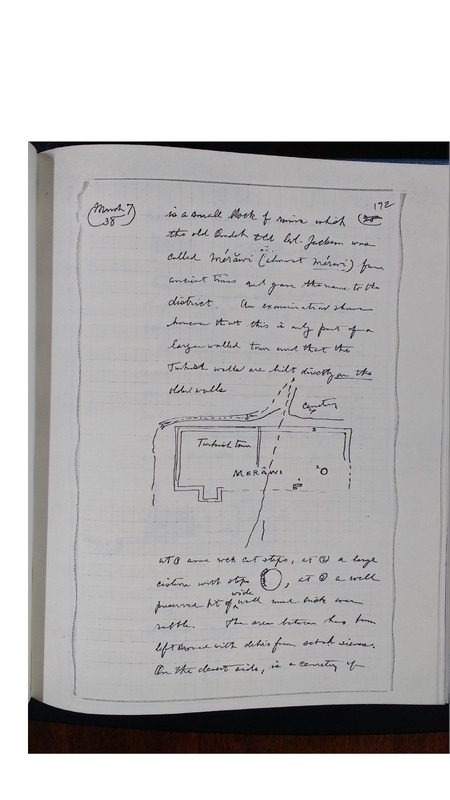 March 7
38
172
is a small block of ruins which
the old Omdeh told Col. Jackson was
called Mérâwi (almost Mérwi) from
ancient times and gave the name to the
district. An examination shows
however that this is only part of a
larger walled town and that the
Turkish walls are built directly on the
older walls
cemetery
3
Turkish town
MERÂWI
2
1
at 1 some rock cut steps, at 2 a large
cistern with steps , at 3 a well
wide
preserved bit of wall mud brick over
rubble. The area between has been
left covered with debris from
On the desert side, is a cemetery of